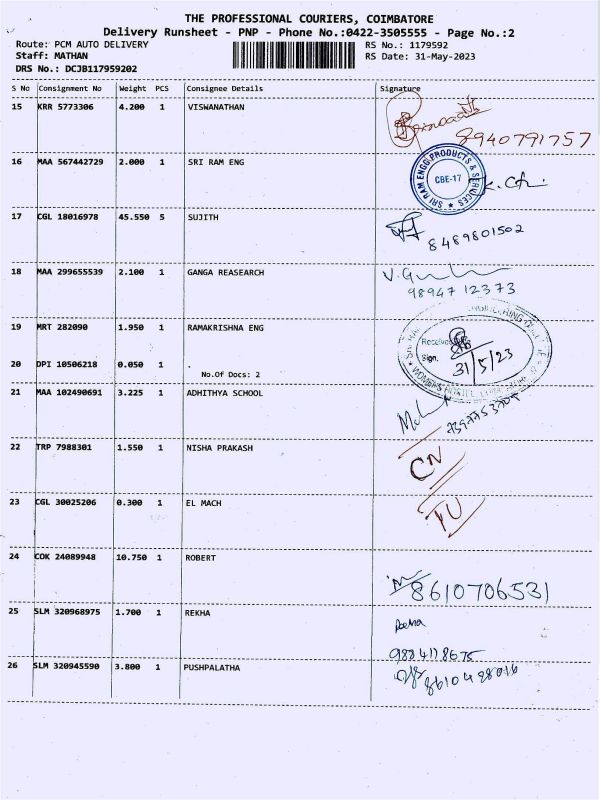 THE PROFESSIONAL COURIERS, COIMBATORE
Delivery Runsheet - PNP - Phone No.:0422-3505555 - Page No.:2
Route: PCM AUTO DELIVERY RS No.: 1179592
Staff: MATHAN RS Date: 31-May-2023
DRS No.: DCJB117959202
S No Consignment No Weight PCS Consignee Details Signature
15 KRR 5773306 4.200 1 VISWANATHAN
8940791757
16 MAA 567442729 2.000 1 SRI RAM ENG
SRI RAM ENGG.PRODUCTS & SERVICES
CBE-17
17 CGL 18016978 45.550 5 SUJITH
8489801502
18 MAA 299655539 2.100 1 GANGA REASEARCH
98947 12373
19 MRT 282090 1.950 1 RAMAKRISHNA ENG
ENGINEERING COLLEGE
Received
Sign.
31/5/23
WOMEN'S HOSTEL
20 DPI 10506218 0.050 1 .
No.Of Docs: 2
21 MAA 102490691 3.225 1 ADHITHYA SCHOOL
22 TRP 7988301 1.550 1 NISHA PRAKASH
CN
23 CGL 30025206 0.300 1 EL MACH
TU
24 COK 24089948 10.750 1 ROBERT
8610706531
25 SLM 320968975 1.700 1 REKHA
9884118675
26 SLM 320945590 3.800 1 PUSHPALATHA
8610498016